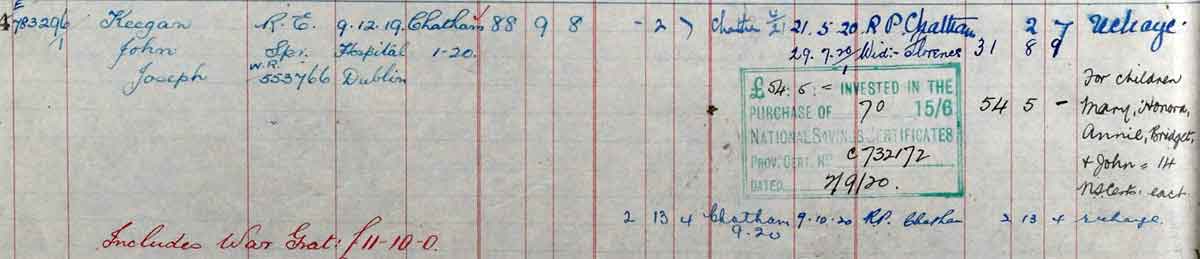 E
4 783296/1 Keegan R.E. 9.12.19. Chatham 88 9 8 - 2 7 21.5.20 R P. Chatham 2 7 recharge.
John Spr. Hospital 1-20. 29.7.20 Wid:- Florence 31 8 9
W.R.
Joseph 553766 Dublin
£54. 5. = INVESTED IN THE
PURCHASE OF 70 15/6
NATIONAL SAVINGS CERTIFICATES
PROV. CERT. No C732172
DATED 2/9/20.
54 5 -
For children
Mary, Honora,
Annie, Bridget,
& John = 14
NS Certs. each
2 13 4 Chatham 9.10.20 R.P. Chatham 2 13 4 recharge.
9.20
Includes War Grat: £11-10-0.